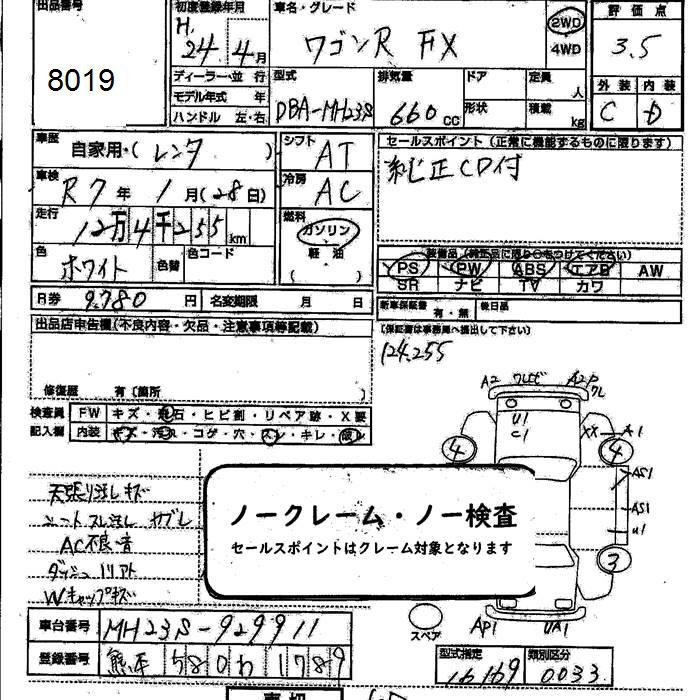 出品番号
8019
初度登録年月
H.24年 4月
ディーラー・並行
モデル年式 年
ハンドル 左・右
車名・グレード
ワゴンR FX
2WD
4WD
型式
DBA-MH23S
排気量
660 cc
ドア
形状
定員
人
積載
kg
評価点
3.5
外装 内装
C D
車歴
自家用・(レンタ )
車検
R7年 1月(28日)
走行
12万4千255 km
色
ホワイト
色替
色コード
シフト
AT
冷房
AC
燃料
ガソリン
軽油
( )
セールスポイント(正常に機能するものに限ります)
純正CD付
装備品(純正品に限り○をつけてください)
PS PW ABS エアB AW
SR ナビ TV カワ
R券 9.780 円 名変期限 月 日
新車保証書 有・無 後日品
(保証書は事務局へ提出して下さい)
出品店申告欄(不良内容・欠品・注意事項等記載)
124,255
修復歴 有(箇所 )
検査員 FW キズ・飛石・ヒビ割・リペア跡・X要
記入欄 内装 キズ・汚れ・コゲ・穴・スレ・キレ・
A2 ワレ A2P
ワレ
U1
C1
XX A1
4
4
天張り汚レキズ
シートスレ汚レ ヤブレ
AC不良・音
ダッシュ
Wキャップキズ
ノークレーム・ノー検査
セールスポイントはクレーム対象となります
AS1
AS1
U1
3
スペア
AP1 UA1
車台番号 MH23S-929911
登録番号 熊本 580 わ 1789
型式指定 類別区分
16169 0033